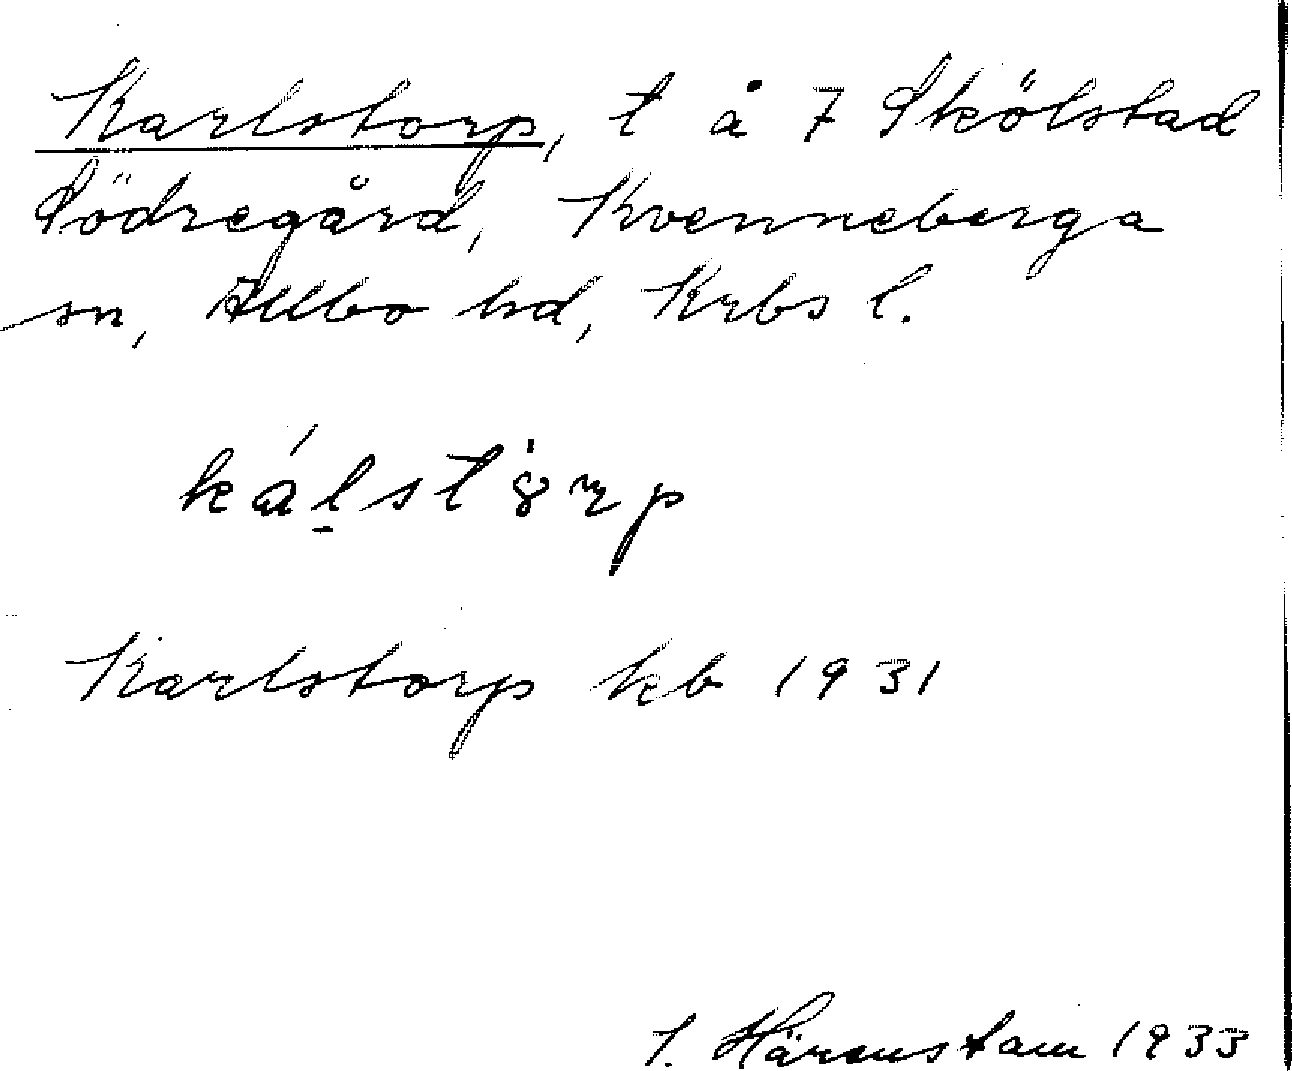 Karlstorp, t å 7 Skölstad
Södregård, Kvenneberga
sn, Allbo hd, Krbs l.
kálstòrp
Karlstorp kb 1931
1933